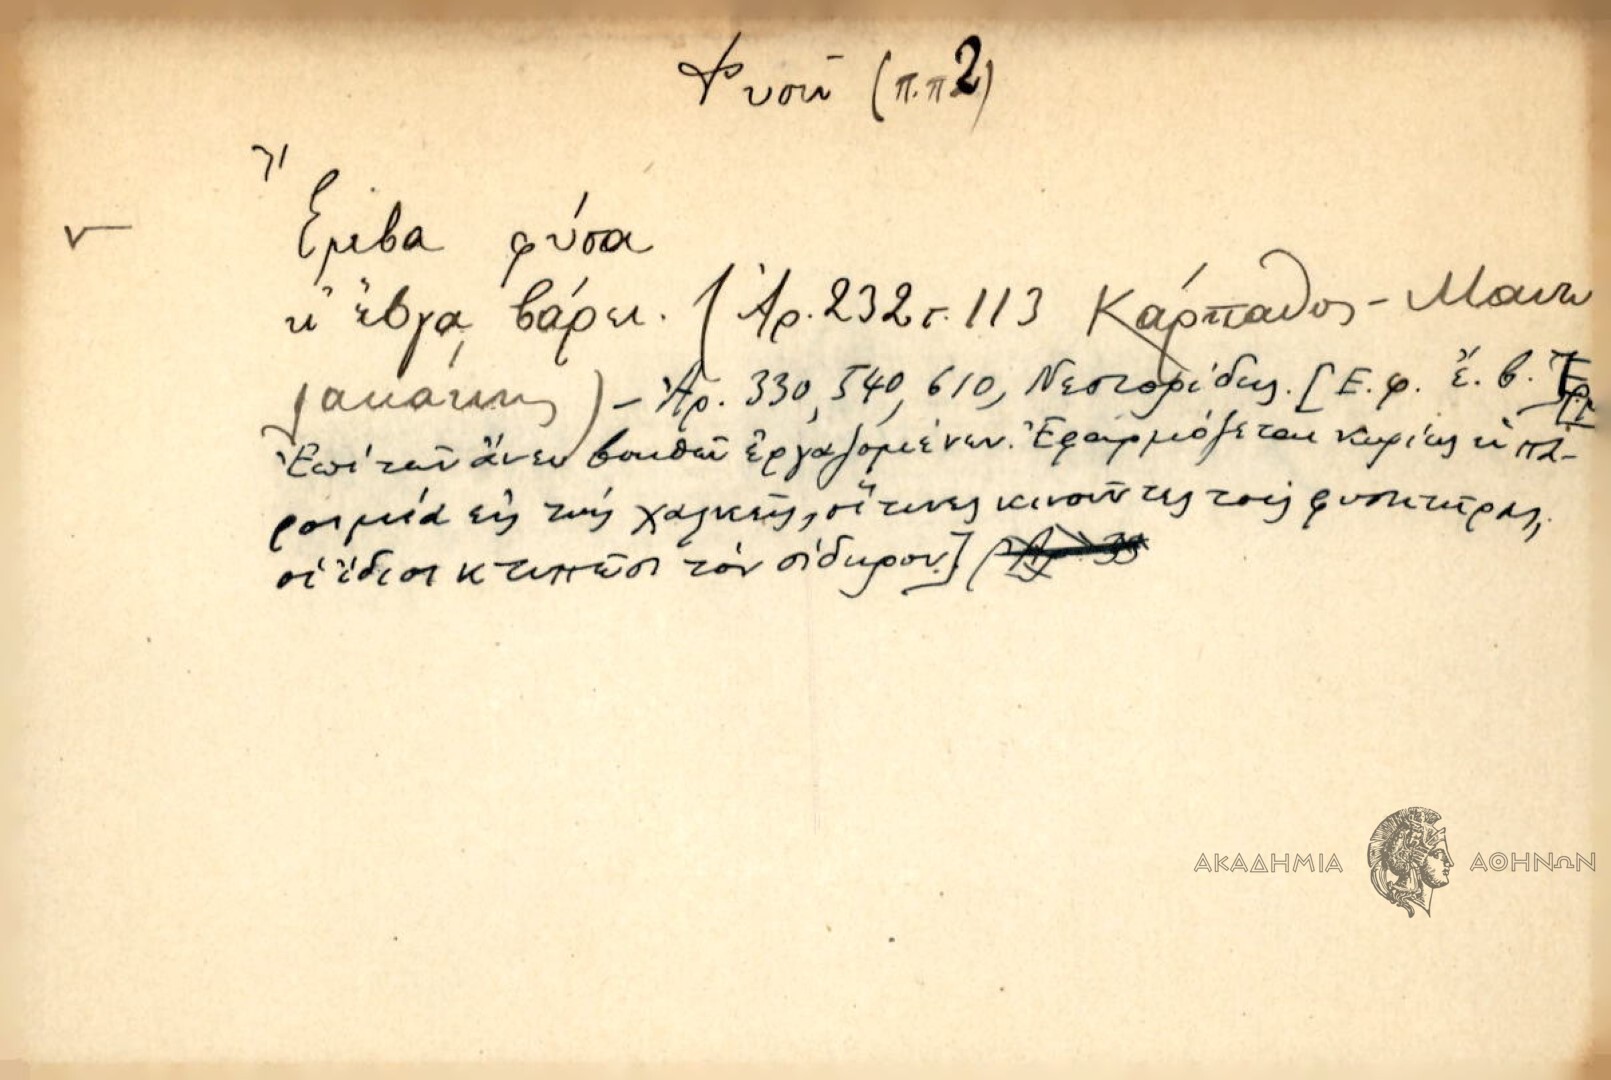 Φυσῶ (π.π 2)
Ἔμβα φύσα
κ' ἔβγα βάρει. (Ἀρ. 232 σ. 113 Κάρπαθος - Μανω
λακάκης) - Ἀρ. 330, 540, 610, Νεστορίδης. [Ε. φ. ἔ. β.
Ἐπί τῶν ἄνευ βοηθῶν ἐργαζομένων. Ἐφαρμόζεται κυρίως ἡ πα-
ροιμία εἰς τούς χαλκεῖς, οἵτινες κινοῦντες τούς φυσητῆρας,
οἱ ἴδιοι κτυπῶσι τόν σίδηρον]
ΑΚΑΔΗΜΙΑ ΑΘΗΝΩΝ